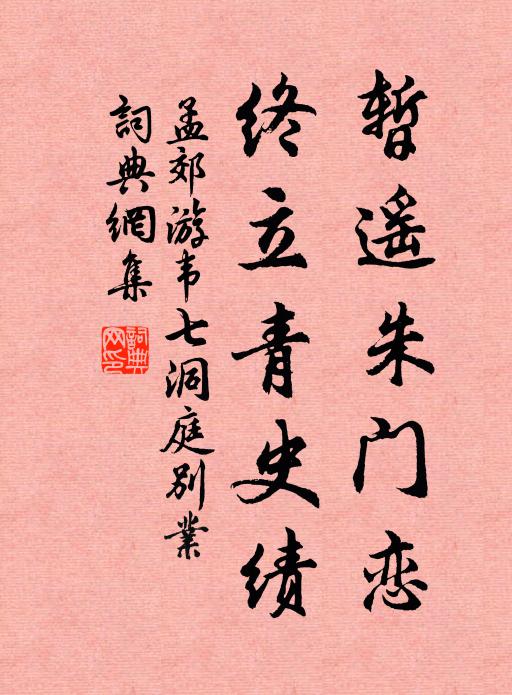 暂遥朱门恋
终立青史绩
孟郊游韦七洞庭别業
詞典網集
詞典网印